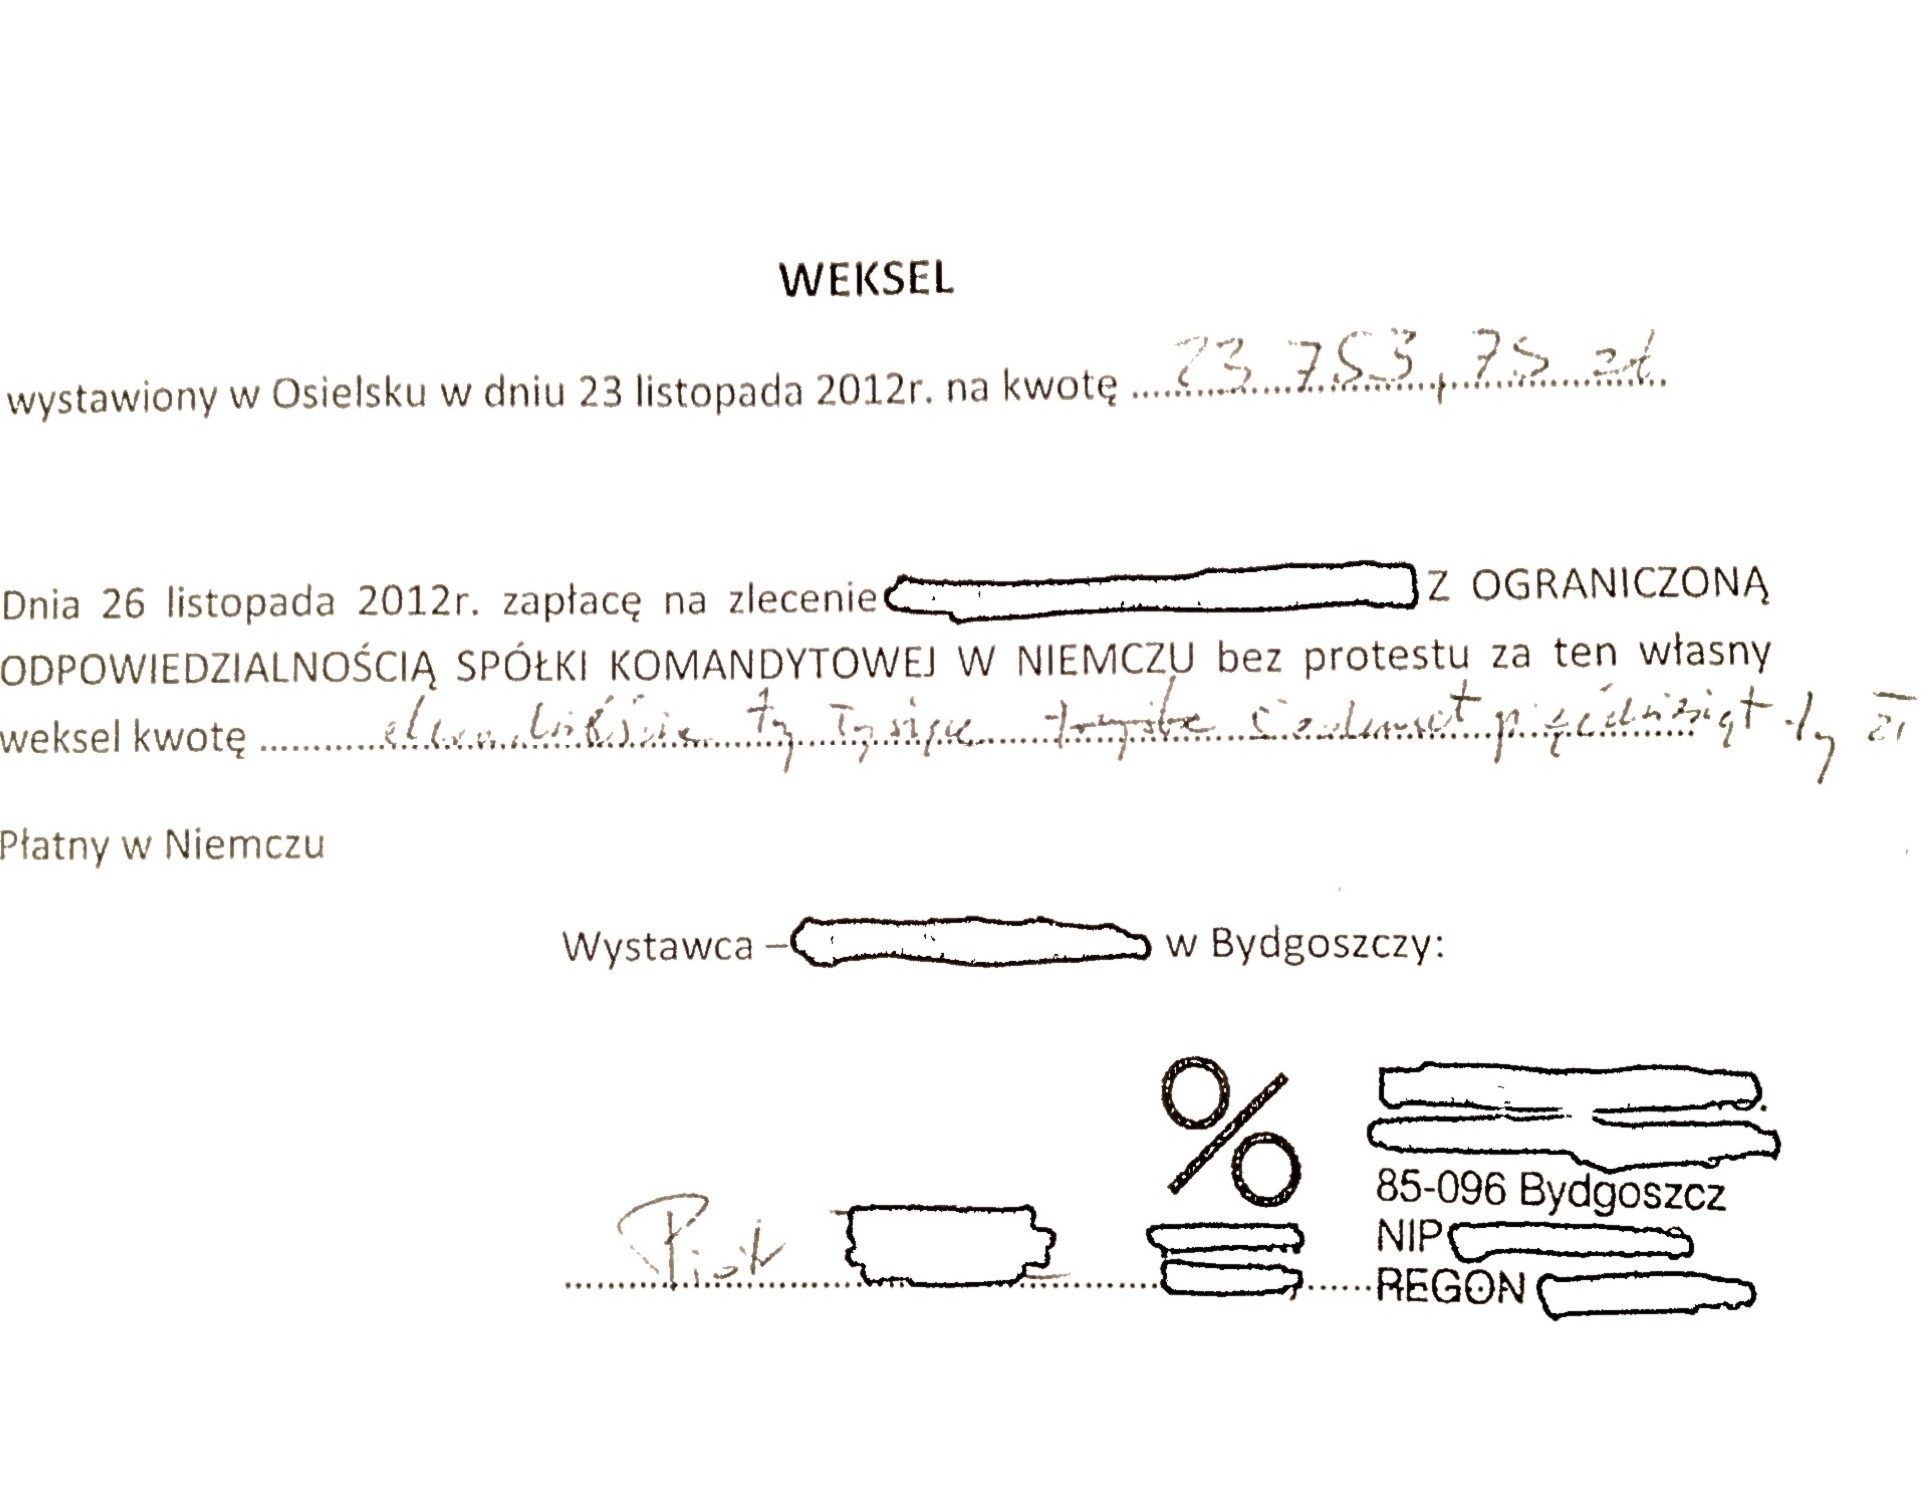 WEKSEL
wystawiony w Osielsku w dniu 23 listopada 2012r. na kwotę 23 753,75 zł
Dnia 26 listopada 2012r. zapłacę na zlecenie Z OGRANICZONĄ
ODPOWIEDZIALNOŚCIĄ SPÓŁKI KOMANDYTOWEJ W NIEMCZU bez protestu za ten własny
weksel kwotę dwadzieścia trzy tysiące siedemset pięćdziesiąt trzy zł
Płatny w Niemczu
Wystawca – w Bydgoszczy:
85-096 Bydgoszcz
NIP
Piotr
REGON